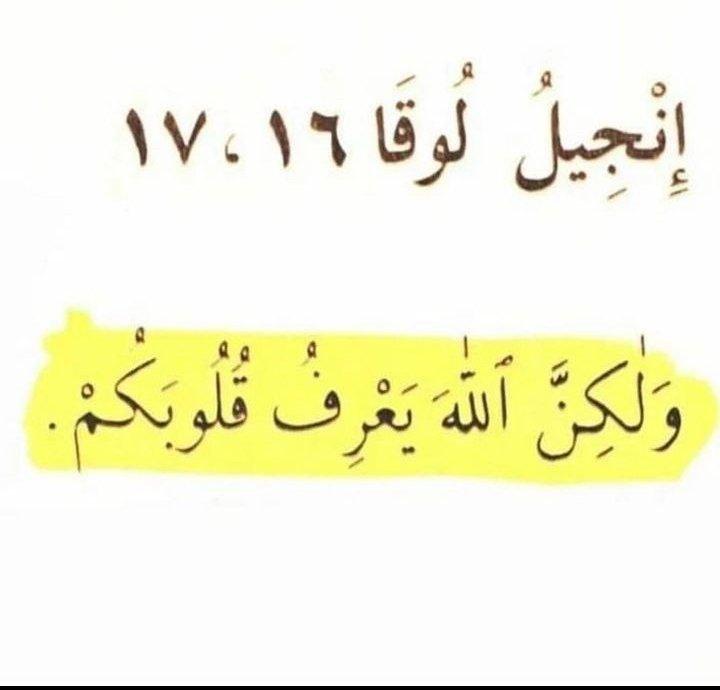 إِنْجِيلُ لُوقَا ١٦، ١٧
وَلٰكِنَّ ٱللّٰهَ يَعْرِفُ قُلُوبَكُمْ.